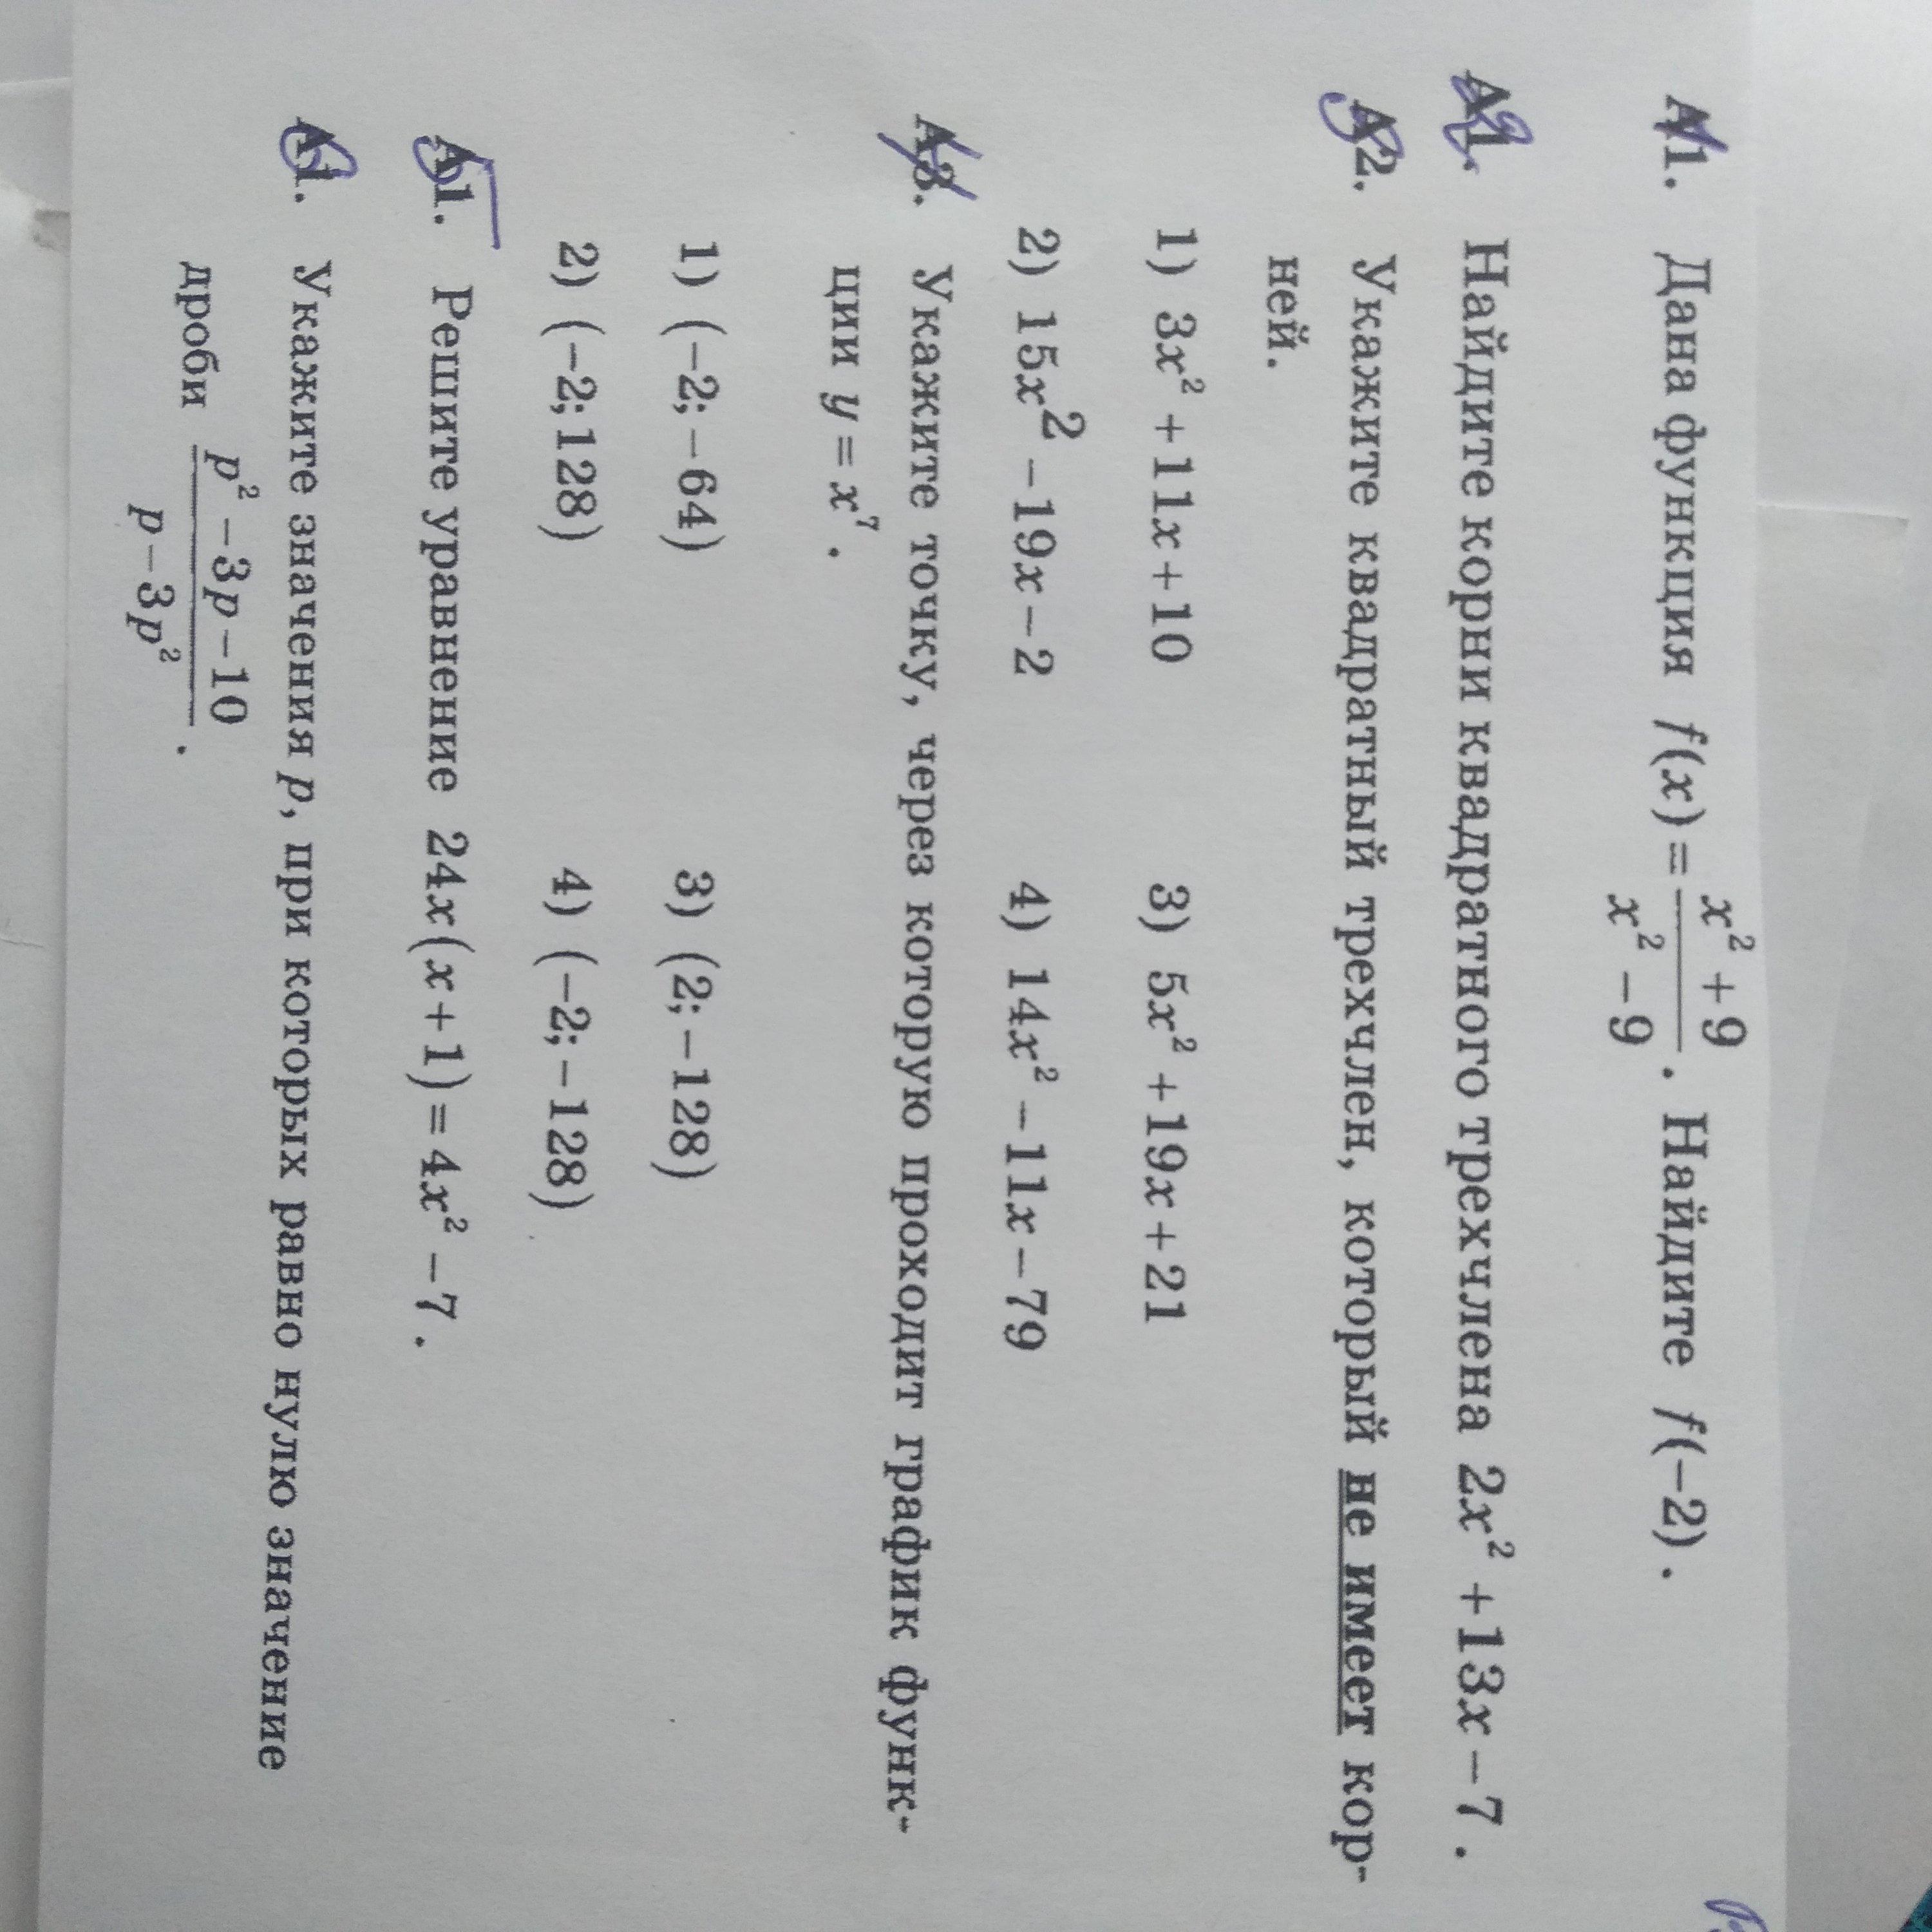 А1. Дана функция f(x) = (x² + 9)/(x² − 9). Найдите f(−2).
А1. Найдите корни квадратного трехчлена 2x² + 13x − 7.
А2. Укажите квадратный трехчлен, который не имеет кор-
ней.
1) 3x² + 11x + 10 3) 5x² + 19x + 21
2) 15x² − 19x − 2 4) 14x² − 11x − 79
А3. Укажите точку, через которую проходит график функ-
ции y = x⁷.
1) (−2; −64) 3) (2; −128)
2) (−2; 128) 4) (−2; −128)
А1. Решите уравнение 24x(x + 1) = 4x² − 7.
А1. Укажите значения p, при которых равно нулю значение
дроби (p² − 3p − 10)/(p − 3p²).